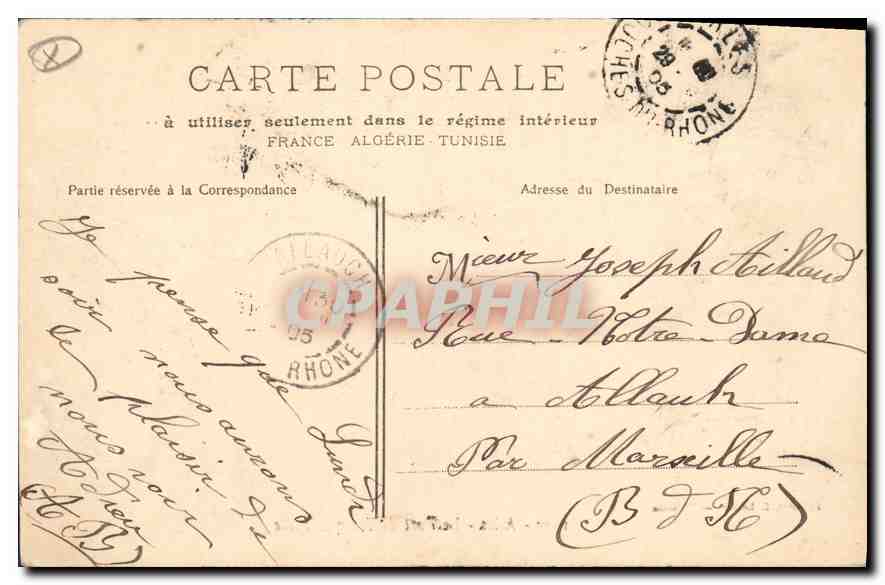 CARTE POSTALE
à utiliser seulement dans le régime intérieur
FRANCE ALGÉRIE - TUNISIE
Partie réservée à la Correspondance
Adresse du Destinataire
BOUCHES-DU-RHONE
29
05
ALLAUCH
05
RHONE
CPAPHIL
Je pense que Lundi
soir nous aurons de
le plaisir
nous voir
Adieu
(A B)
Mieur Joseph Aillaud
Rue - Notre - Dame
a Allauch
Par Marseille -
(B d R)